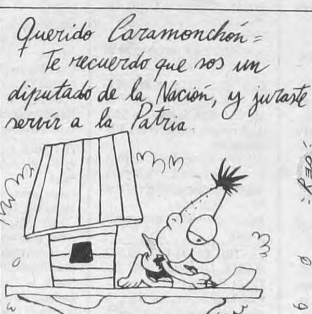 Querido Caramonchón=
Te recuerdo que sos un
diputado de la Nación, y juraste
servir a la Patria.